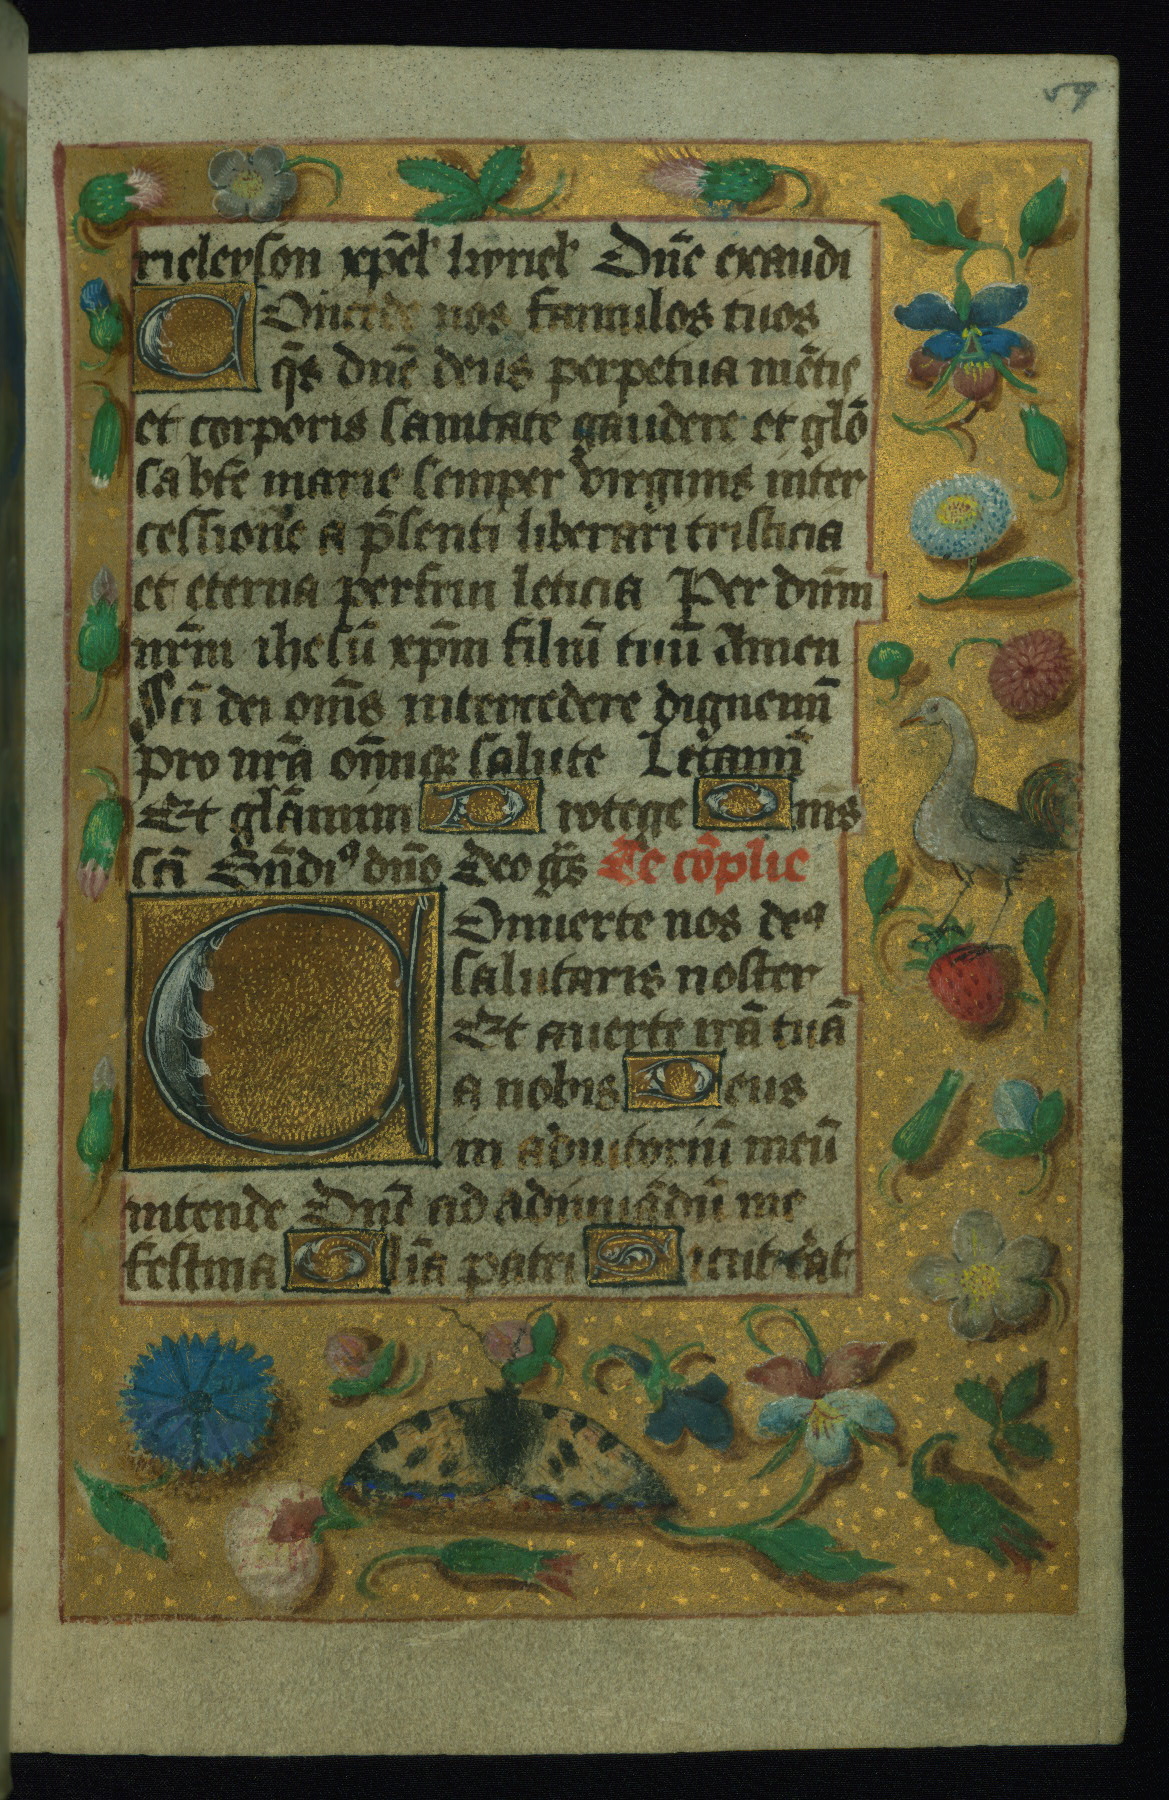 59
rieleyson xp̄el' kyriel' Dn̄e exaudi
Concede nos famulos tuos
q̄s dn̄e deus perpetua mētis
et corporis sanitate gaudere et glō
sa bt̄e marie semper virginis inter
cessione a p̄senti liberari tristicia
et eterna perfrui leticia Per dn̄m
nr̄m ihesū xp̄m filiū tuū Amen
Sc̄i dei om̄s intercedere dignemī
pro nr̄a om̄iq; salute Letamī
Et gl̄amini Protege Om̄s
sc̄i Bn̄di⁹ dn̄o Deo gr̄s De cōplie
Conuerte nos de⁹
salutaris noster
Et auerte irā tuā
a nobis Deus
in adiutoriū meū
intende Dn̄e ad adiuuādū me
festina Gl̄ia patri Sicut erat